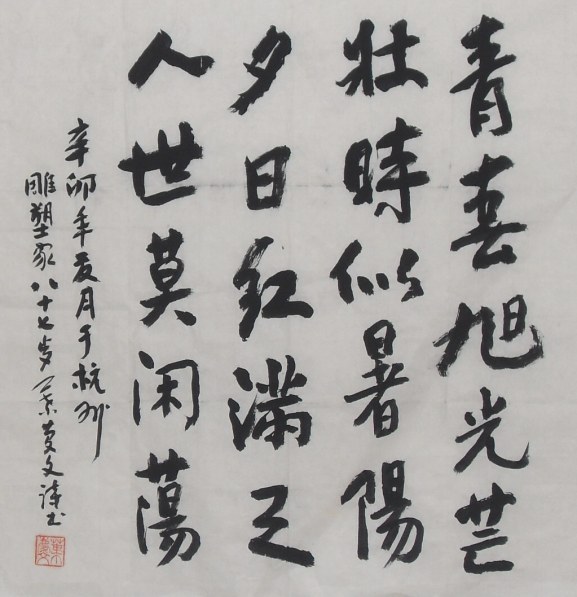 青春旭光芒
壮時似暑陽
夕日红滿天
人世莫闲蕩
辛卯年夏月于杭州
雕塑家八十七岁葉庆文诗书